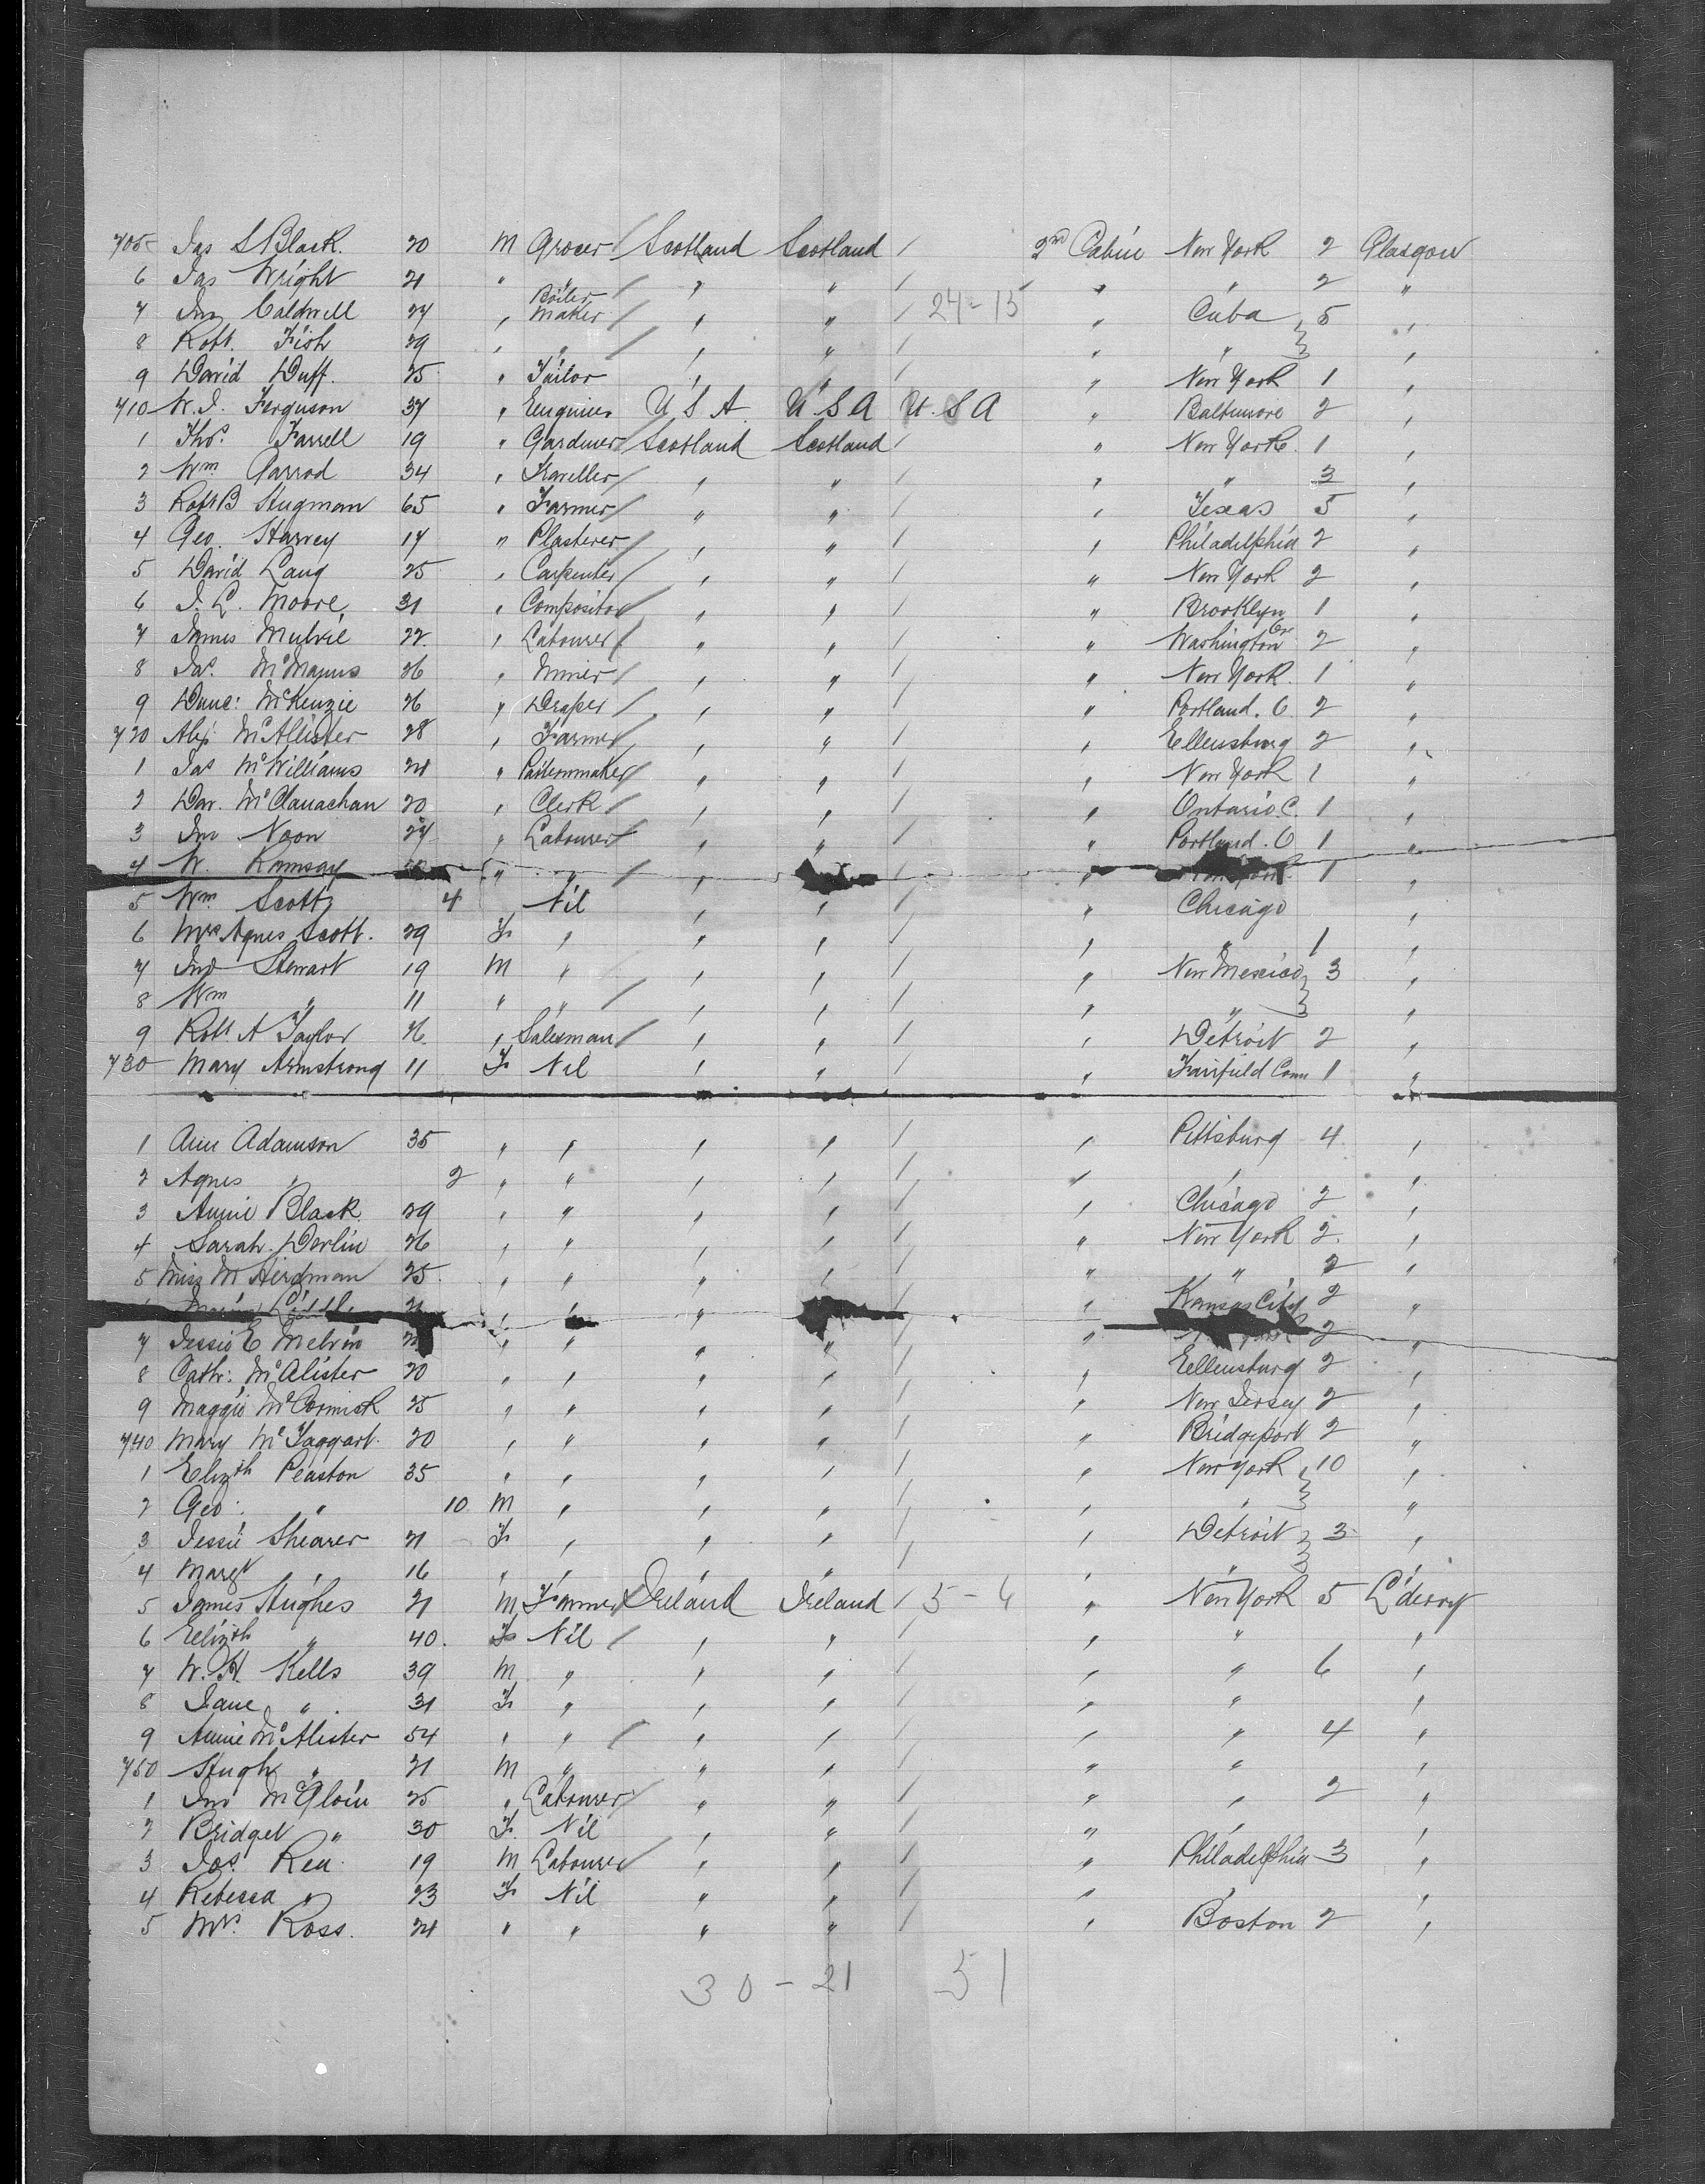 705 Jas S Black. 20 M Grocer Scotland Scotland / 2nd Cabin New York 2 Glasgow
6 Jas Wright 21 " " " " / " " 2 "
7 Jno Caldwell 27 " Boiler Maker " " / 24-15 " Cuba 5 "
8 Robt. Fish 29 " " " " / " " "
9 David Duff. 25 " Tailor " " / " New York 1 "
710 W. J. Ferguson 37 " Enginier U S A U. S A U. S A " Baltimore 2 "
1 Thos. Farrell 19 " Gardner Scotland Scotland / " New York. 1 "
2 Wm Garrod 34 " Traveller " " / " " 3 "
3 Robt B 65 " Farmer " " / " Texas 5 "
4 Geo. Harvey 17 " Plasterer " " / " Philadelphia 2 "
5 David Lang 25 " Carpenter " " / " New York 2 "
6 J. L. Moore 31 " Compositor " " / " Brooklyn 1 "
7 James Mulvie 22. " Labourer " " / " Washington 2 "
8 Jas. McManus 26 " Miner " " / " New York. 1 "
9 Dunc: McKenzie 26 " Draper " " / " Portland. O. 2 "
720 Alex McAllister 28 " Farmer " " / " Ellensburg 2 "
1 Jas McWilliams 21 " Patternmaker " " / " New York 1 "
2 Dav. McClanachan 20 " Clerk " " / " Ontario C. 1 "
3 Jno Noon 27 " Labourer " " / " Portland. O 1 "
4 W. Ramsay " " " / " 1 "
5 Wm Scott 4 Nil " " / " Chicago "
6 Mrs Agnes Scott. 29 F " " " / " " 1 "
7 Jno Stewart 19 M " " " / " New Mexico 3 "
8 Wm " 11 " " " " / " " "
9 Robt A Taylor 26. " Salesman " " / " Detroit 2 "
730 Mary Armstrong 11 F Nil " " / " Fairfield Conn 1 "
1 Ann Adamson 35 " " " " / " Pittsburg 4 "
2 Agnes " 2 " " " " / " " "
3 Annie Black. 29 " " " " / " Chicago 2 "
4 Sarah Devlin 26 " " " " / " New York 2. "
5 Miss M Herdman 25. " " " " / " " 2 "
" " " / " Kansas City 2 "
7 Jessie E Melvin " " " " / " 2 "
8 Cathr: McAlister 20 " " " " / " Ellensburg 2 "
9 Maggie McCormick 25 " " " " / " New Jersey 2 "
740 Mary McTaggart. 20 " " " " / " Bridgeport 2 "
1 Elizth Peaston 35 " " " " / " New York 10 "
2 Geo: " 10 M " " " / " " "
3 Jessie Shearer 21 F " " " / " Detroit 3 "
4 Margt " 16 " " " " / " " "
5 James Hughes 21 M Farmer Ireland Ireland / 5-6 " New York 5 L'derry
6 Elizth " 40. F Nil " " / " " "
7 W. H. Kells 39 M " " " / " " 6 "
8 Jane " 31 F " " " / " " "
9 Annie McAlister 54 " " " " / " " 4 "
750 Hugh " 21 M " " " / " " "
1 Jno McGloin 25 " Labourer " " / " " 2 "
2 Bridget " 30 F. Nil " " / " " "
3 Jas. Rea. 19 M Labourer " " / " Philadelphia 3 "
4 Rebecca " 23 F Nil " " / " " "
5 Mrs. Ross. 21 " " " " / " Boston 2 "
30-21 51